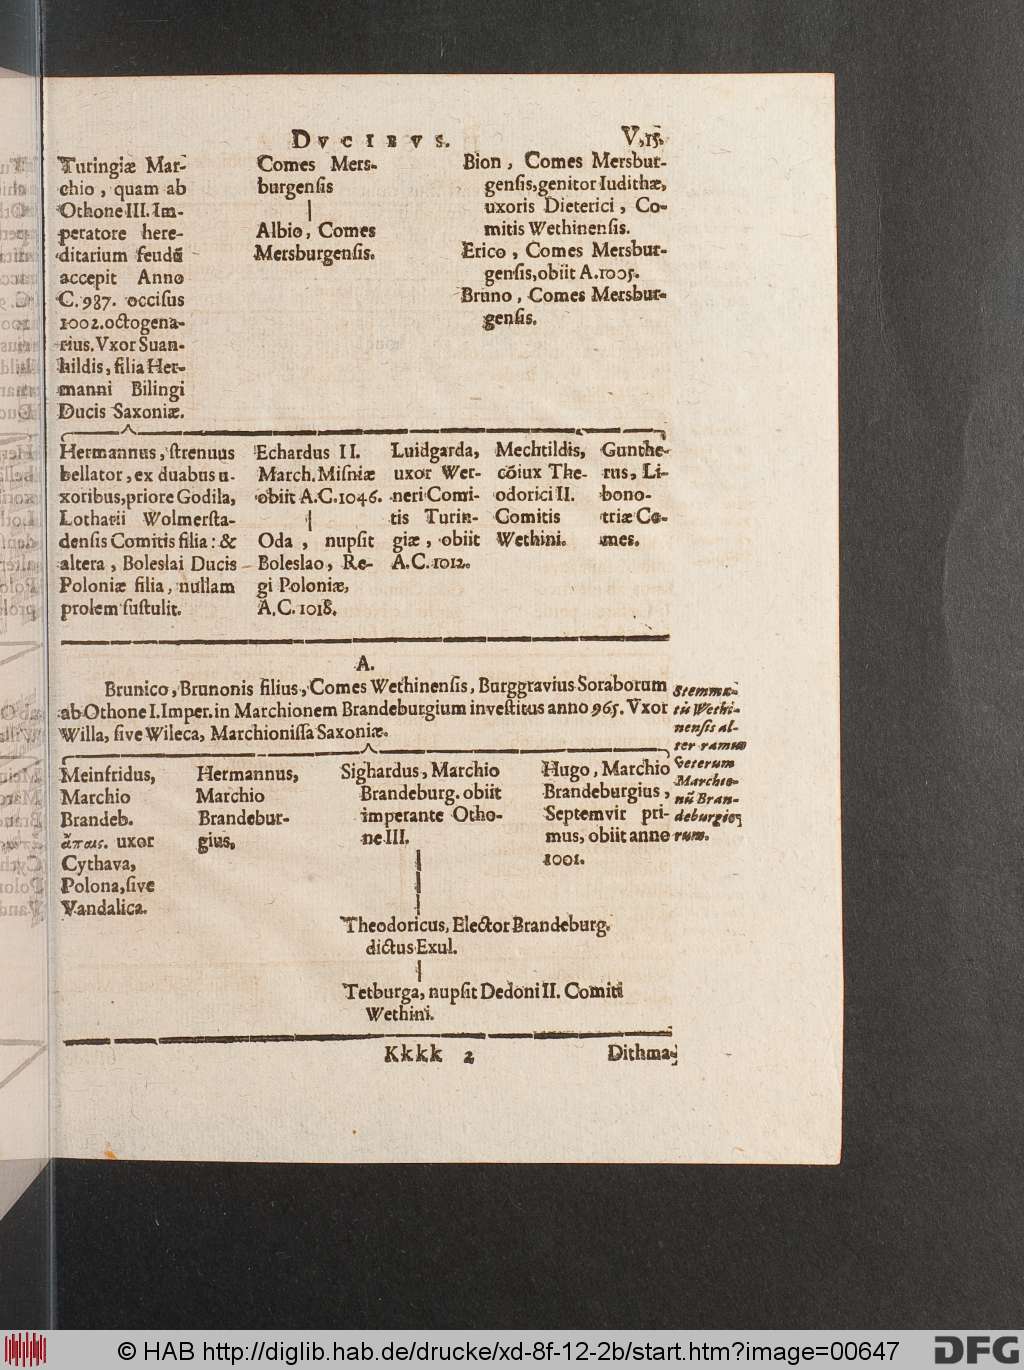 DVCIBVS.
V, 15.
Turingiæ Mar-
chio, quam ab
Othone III. Im-
peratore here-
ditarium feudū
accepit Anno
C. 987. occiſus
1002. octogena-
rius. Vxor Suan-
hildis, filia Her-
manni Bilingi
Ducis Saxoniæ.
Comes Mers-
burgenſis
Albio, Comes
Mersburgenſis.
Bion, Comes Mersbur-
genſis, genitor Iudithæ,
uxoris Dieterici, Co-
mitis Wethinenſis.
Erico, Comes Mersbur-
genſis, obiit A. 1005.
Bruno, Comes Mersbur-
genſis.
Hermannus, ſtrenuus
bellator, ex duabus u-
xoribus, priore Godila,
Lotharii Wolmerſta-
denſis Comitis filia: &
altera, Boleslai Ducis
Poloniæ filia, nullam
prolem ſuſtulit.
Echardus II.
March. Miſniæ
obiit A.C. 1046.
Oda, nupſit
Boleslao, Re-
gi Poloniæ,
A.C. 1018.
Luidgarda,
uxor Wer-
neri Comi-
tis Turin-
giæ, obiit
A.C. 1012.
Mechtildis,
cōiux The-
odorici II.
Comitis
Wethini.
Gunthe-
rus, Li-
bono-
triæ Co-
mes.
A.
Brunico, Brunonis filius, Comes Wethinenſis, Burggravius Soraborum
ab Othone I. Imper. in Marchionem Brandeburgium inveſtitus anno 965. Vxor
Willa, ſive Wileca, Marchioniſſa Saxoniæ.
Stemma-
tis Wethi-
nenſis al-
ter ramus
Veterum
Marchio-
nū Bran-
deburgio-
rum.
Meinfridus,
Marchio
Brandeb.
ἄπαις. uxor
Cythava,
Polona, ſive
Vandalica.
Hermannus,
Marchio
Brandebur-
gius,
Sighardus, Marchio
Brandeburg. obiit
imperante Otho-
ne III.
Hugo, Marchio
Brandeburgius,
Septemvir pri-
mus, obiit anno
1001.
Theodoricus, Elector Brandeburg.
dictus Exul.
Tetburga, nupſit Dedoni II. Comiti
Wethini.
Kkkk 2
Dithma-
© HAB http://diglib.hab.de/drucke/xd-8f-12-2b/start.htm?image=00647
DFG